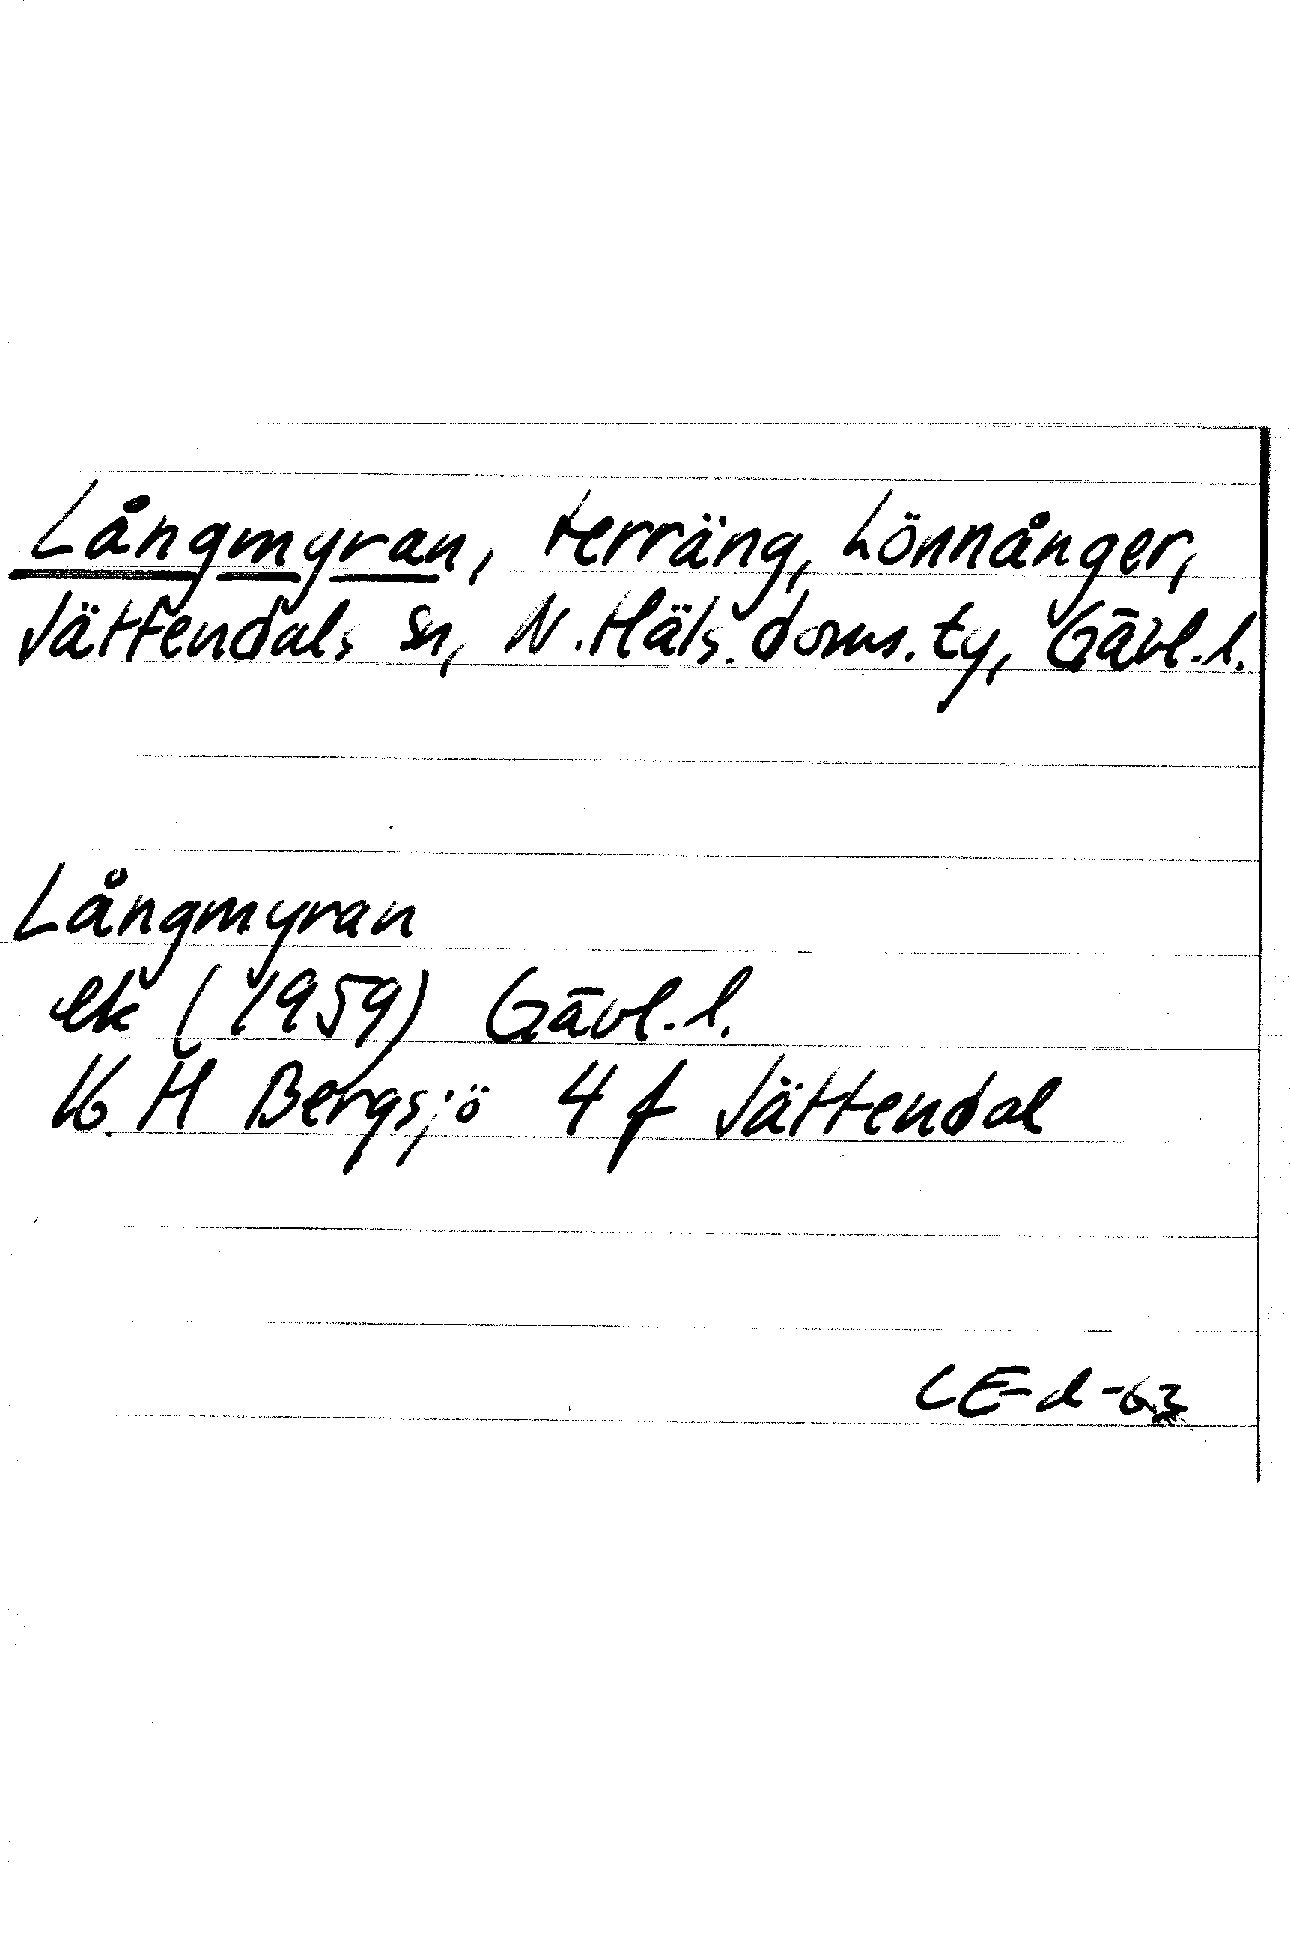 Långmyran, terräng, Lönnånger,
Jättendals sn, N. Häls. doms. ty, Gävl. l.
Långmyran
ek (1959) Gävl. l.
16 H Bergsjö 4 f Jättendal
LE-d-63